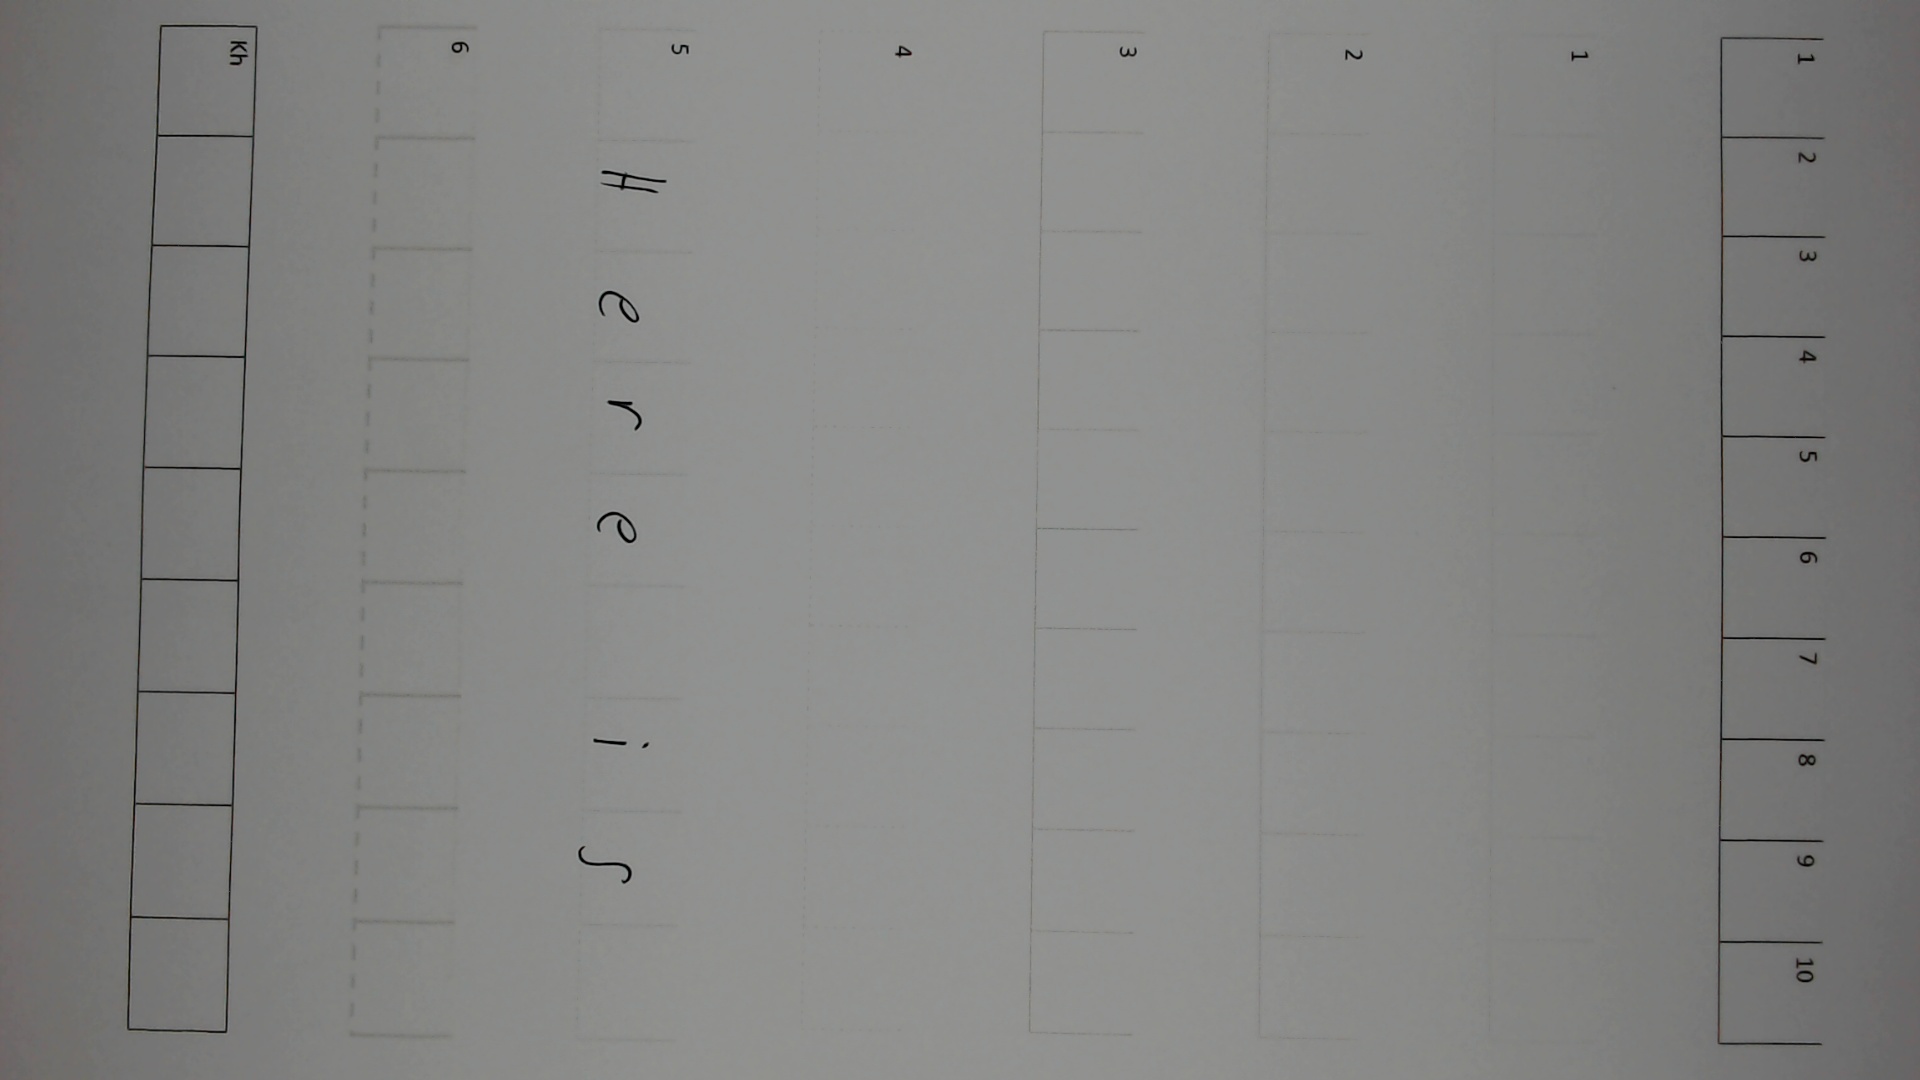 1 2 3 4 5 6 7 8 9 10
1
2
3
4
5 Here is
6
Kh